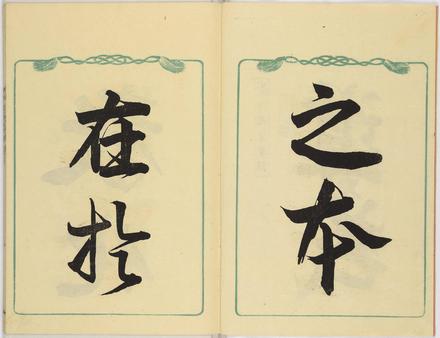 之本
在於